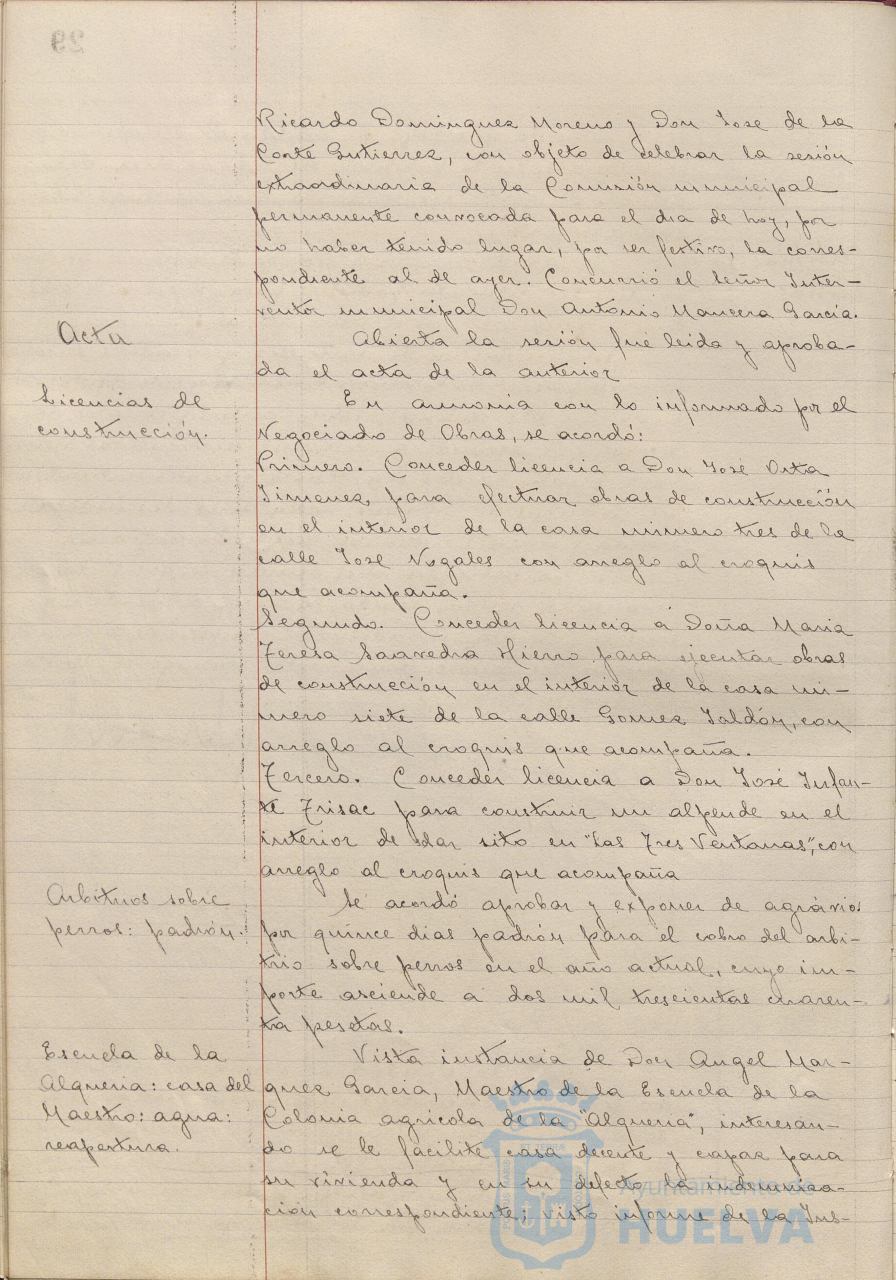 29
Ricardo Dominguez Moreno y Don Jose de la
Corte Gutierrez, con objeto de celebrar la sesión
extraordinaria de la Comisión municipal
permanente convocada para el dia de hoy, por
no haber tenido lugar, por ser festivo, la corres-
pondiente al de ayer. Concurrió el señor Inter-
ventor municipal Don Antonio Mancera Garcia.
Acta
Abierta la sesión fué leida y aproba-
da el acta de la anterior
Licencias de
construcción.
En armonia con lo informado por el
Negociado de Obras, se acordó:
Primero. Conceder licencia a Don José Orta
Jimenez, para efectuar obras de construcción
en el interior de la casa número tres de la
calle José Nogales con arreglo al croquis
que acompaña.
Segundo. Conceder licencia a Doña Maria
Teresa Saavedra Hierro para ejecutar obras
de construcción en el interior de la casa nú-
mero siete de la calle Gomez Jaldón, con
arreglo al croquis que acompaña.
Tercero. Conceder licencia a Don José Infan-
te Trisac para construir un alpende en el
interior de solar sito en "Las Tres Ventanas", con
arreglo al croquis que acompaña
Arbitrios sobre
perros: padrón.
Se acordó aprobar y exponer de agravios
por quince dias padrón para el cobro del arbi-
trio sobre perros en el año actual, cuyo im-
porte asciende a dos mil trescientas cuaren-
ta pesetas.
Escuela de la
Alqueria: casa del
Maestro: agua:
reapertura.
Vista instancia de Don Angel Mar-
quez Garcia, Maestro de la Escuela de la
Colonia agricola de la "Alqueria", interesan-
do se le facilite casa decente y capaz para
su vivienda y en su defecto la indemniza-
ción correspondiente; visto informe de la Ins-
Ayuntamiento de
HUELVA